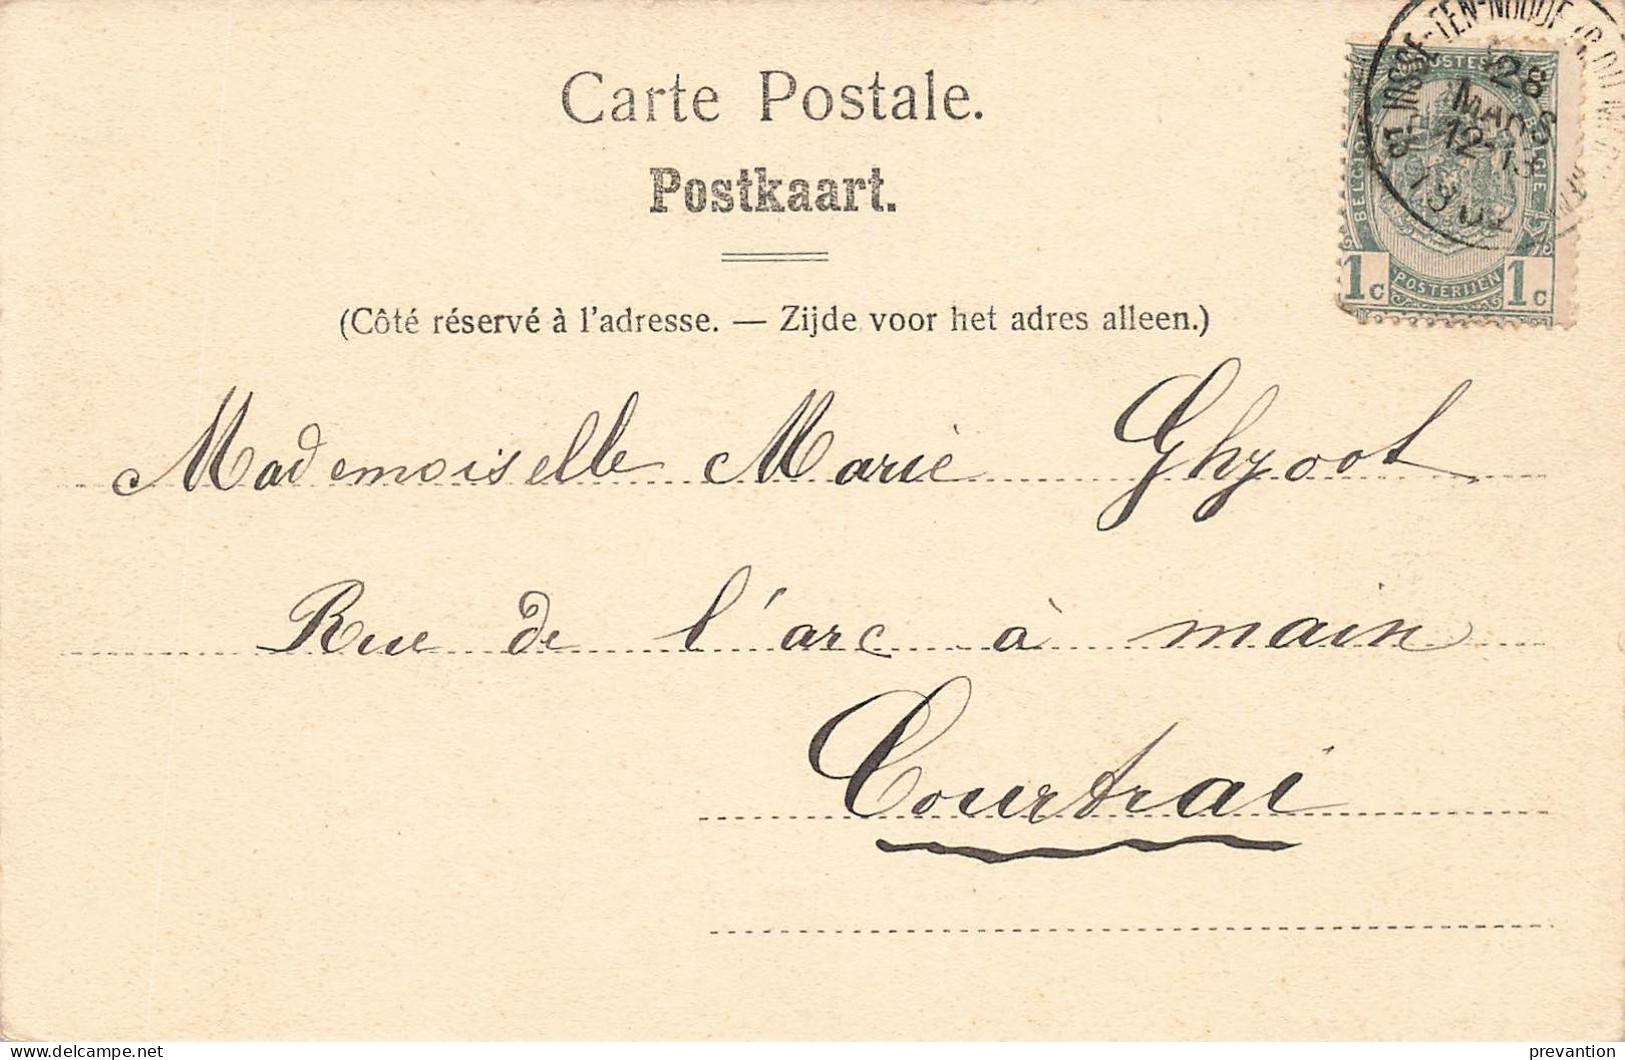 Carte Postale.
Postkaart.
(Côté réservé à l'adresse. — Zijde voor het adres alleen.)
ST JOSSE-TEN-NOODE
28
MARS
12-13
1902
POSTES
BELGIQUE
BELGIE
1c POSTERIJEN 1c
Mademoiselle Marie Ghyoot
Rue de l'arc à main
Courtrai
delcampe.net
prevantion